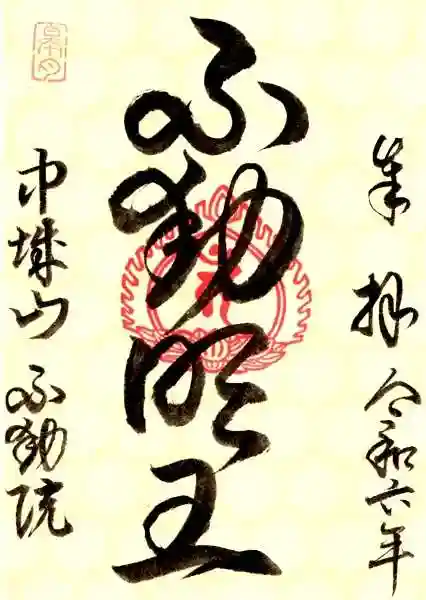 奉拝 令和六年
不動明王
中城山 不動院
皐月